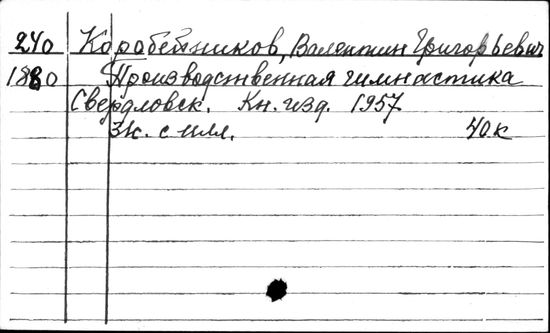 240 Коробейников, Валентин Григорьевич
1880 Производственная гимнастика
Свердловск. Кн. изд. 1957.
с илл. 40к